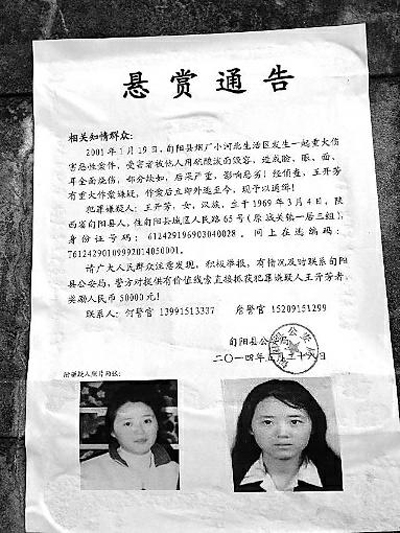 悬赏通告
相关知情群众:
2001年1月19日,旬阳县烟厂小河北生活区发生一起重大伤
害恶性案件,受害者被他人用硫酸泼面毁容,造成脸、眼、面、
耳全面烧伤,部分缺如,后果严重,影响恶劣!经侦查,王开芳
有重大作案嫌疑,作案后立即外逃至今,现予以通缉!
犯罪嫌疑人:王开芳,女,汉族,生于1969年3月4日,陕
西省旬阳县人,住旬阳县城区人民路65号(原城关张一居三组),
身份证号码:612429196903040028。网上在逃编码:
7612429010999201405​0001。
请广大人民群众注意发现,积极举报,有情况及时联系旬阳
县公安局,警方对提供有价值线索直接抓获犯罪嫌疑人王开芳者,
奖励人民币50000元!
联系人:何警官 13991513337 詹警官 15209151299
旬阳县公
二〇一四年五月二十八日
附嫌疑人照片两张: